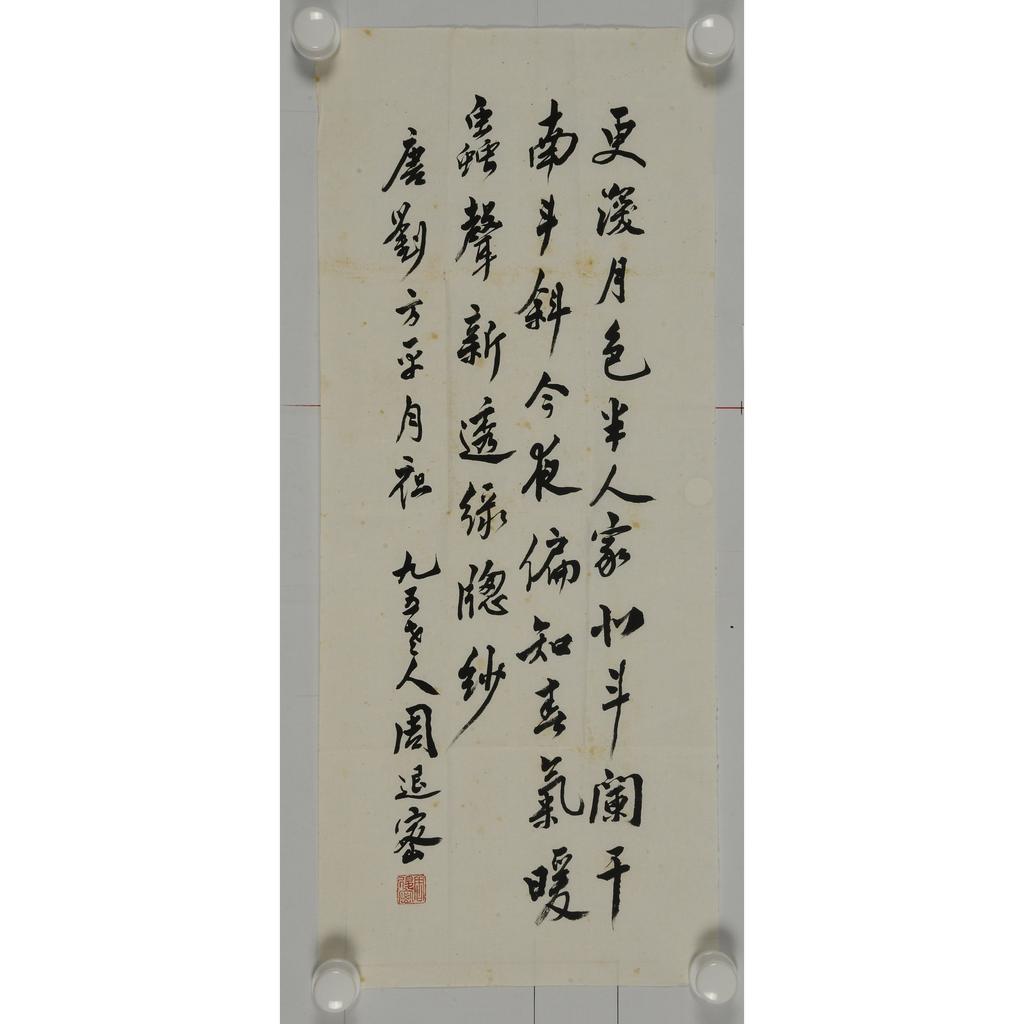 更深月色半人家北斗闌干
南斗斜今夜偏知春氣暖
蟲聲新透綠牕紗
唐劉方平月夜 九五老人周退密